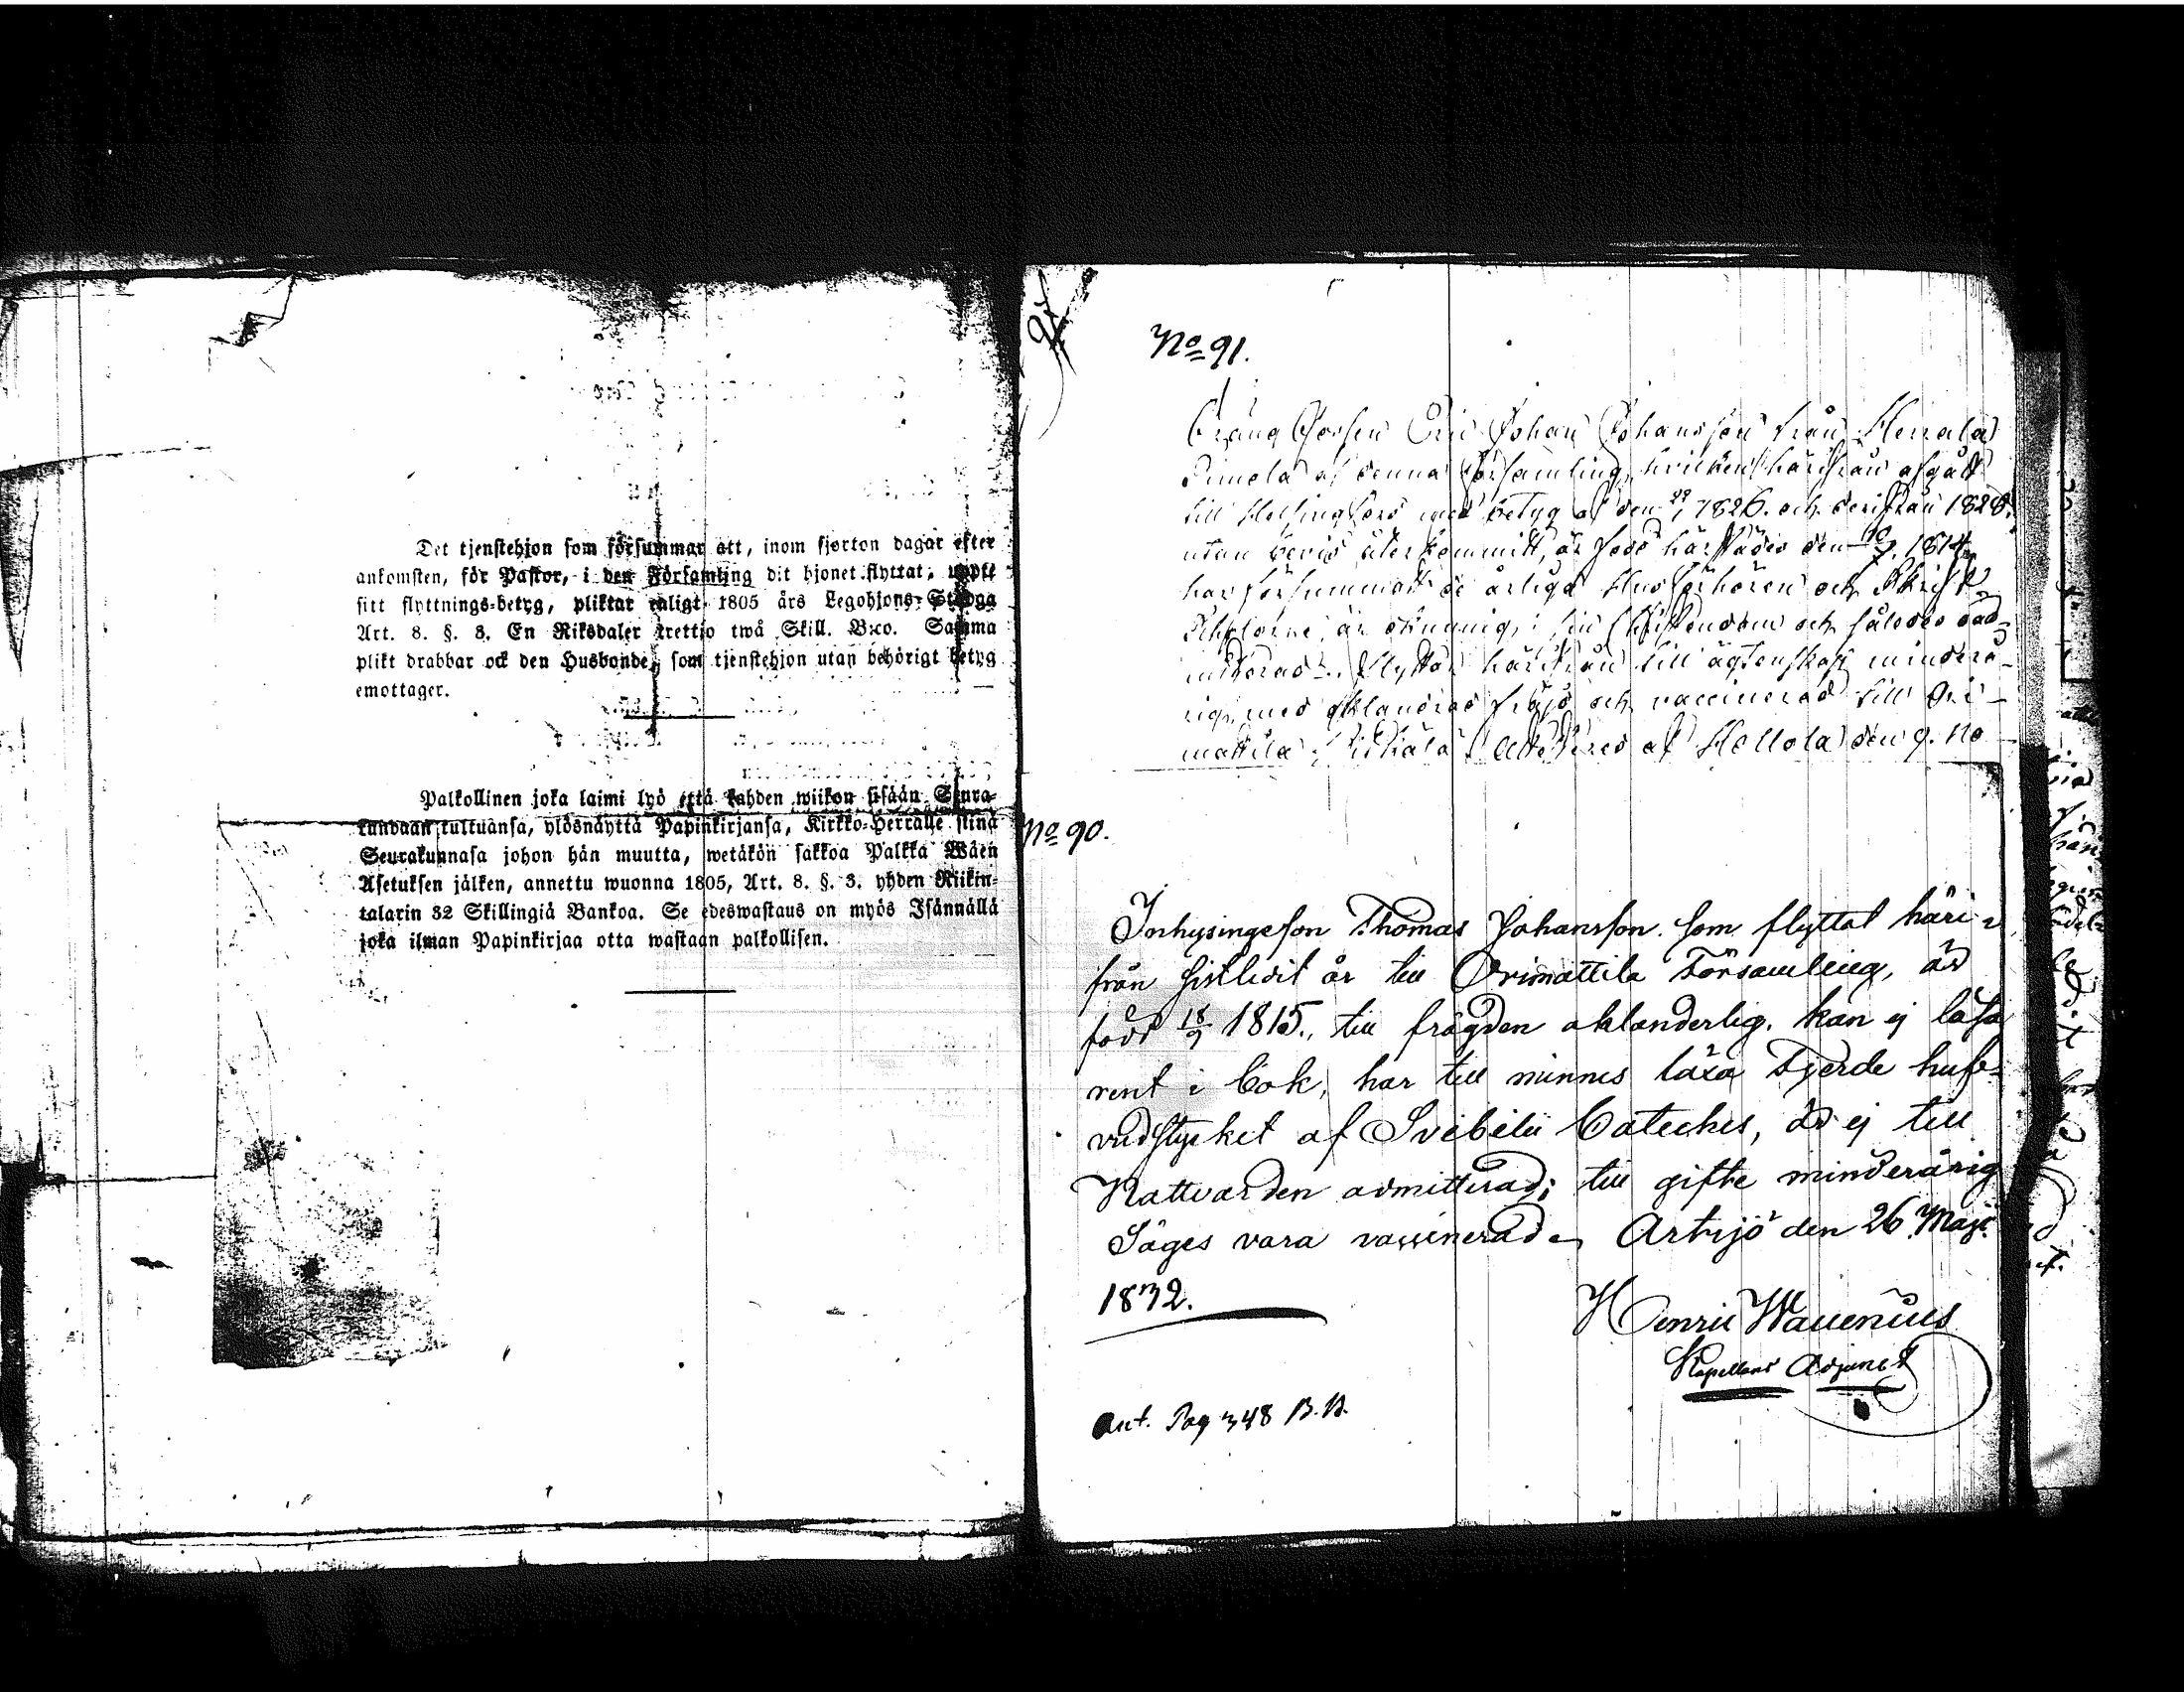 Det tjenstehjon som försummar att, inom fjorton dagar efter
ankomsten, för Pastor, i den Församling dit hjonet flyttat, uppte
sitt flyttnings-betyg, pliktar enligt 1805 års Legohjons-Stadga
Art. 8. §. 3. En Riksdaler trettio twå Skill. B:co. Samma
plikt drabbar ock den Husbonde, som tjenstehjon utan behörigt betyg
emottager.
Palkollinen joka laimi lyö että kahden wiikon sisään Seura-
kundaan tultuansa, ylösnäyttä Papinkirjansa, Kirkko-Herralle siinä
Seurakunnasa johon hän muutta, wetäkön sakkoa Palkka Wäen
Asetuksen jälken, annettu wuonna 1805, Art. 8. §. 3. yhden Riikin-
talarin 32 Skillingiä Bankoa. Se edeswastaus on myös Isännällä
joka ilman Papinkirjaa otta wastaan palkollisen.
91
No 91.
Dräng Gossen Eric Johan Johansson från Herrala
af denna Församling, hvilken härifrån afgått
till Helsingfors med betyg af den 1826. och derifrån 1828.
utan bevis återkommit, är född härstädes den 1814,
har försummat de årliga Husförhören och Skrift
är okunnig i sin Christendom och således oad-
mitterad. Flyttar härifrån till ägtenskap minderå-
rig, med oklandrad frägd och vaccinerad till Ori-
mattila Attesteras af Hollola den 9. No
No 90.
Inhysingeson Thomas Johansson. som flyttat häri-
från sistledit år till Orimattila Församling, är
född 18/9 1815., till frägden oklanderlig. kan ej läsa
rent i bok, har till minnes läxa Fjerde huf-
vudstycket af Svebelii Cateches, är ej till
Nattvarden admitterad; till gifte minderårig
Säges vara vaccinerad. Artsjö den 26 Maji.
1832.
Henric Wavenius
Kapellans Adjunct
Ant. Pag 348 B.B.